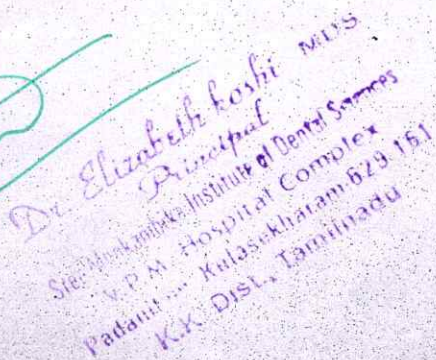 Dr. Elizabeth Koshi MDS
Principal
Sree Mookambika Institute of Dental Sciences
V.P.M. Hospital Complex
Kulasekharam-629 161
K.K. Dist., Tamilnadu